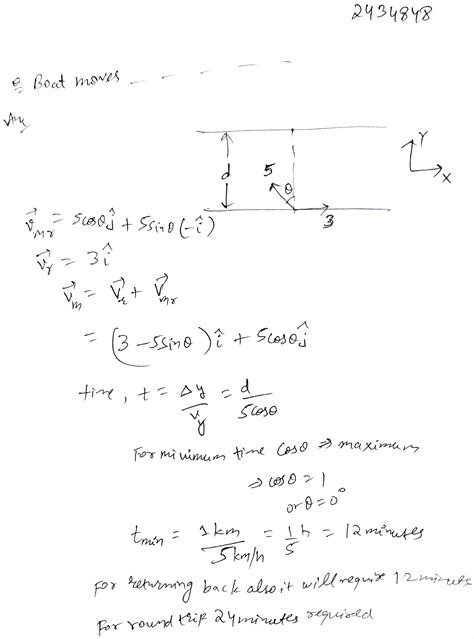 2434848
Q Boat moves _ _ _ _
Ans
Y
X
d
5
θ
3
v⃗mr = 5cosθĵ + 5sinθ(-î)
v⃗r = 3î
v⃗m = v⃗r + v⃗mr
= (3 - 5sinθ)î + 5cosθĵ
time, t = Δy/vy = d/5cosθ
For minimum time cosθ ⇒ maximum
⇒ cosθ = 1
or θ = 0°
tmin = 1km/5km/h = 1/5 h = 12 minutes
For returning back also it will require 12 minutes
For round trip 24 minutes required